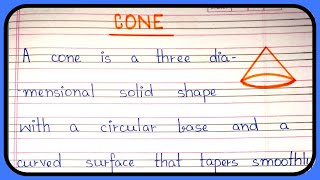 CONE
A cone is a three dia-
mensional solid shape
with a circular base and a
curved surface that tapers smoothly